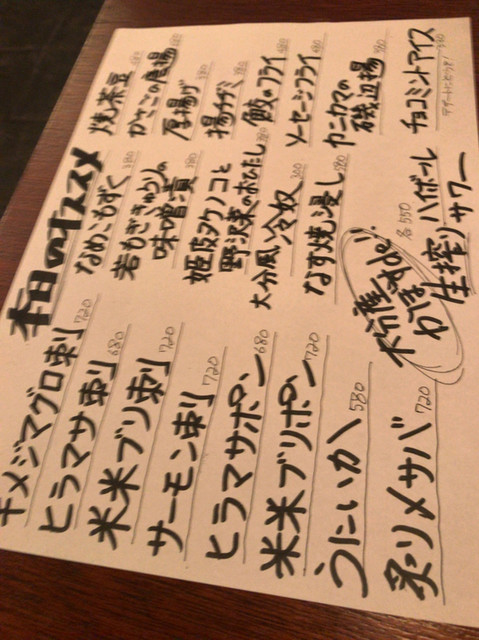 本日のオススメ
キメジマグロ刺 720
ヒラマサ刺 680
米米ブリ刺 720
サーモン刺 720
ヒラマサポン 680
米米ブリポン 720
うにいか 580
炙りメサバ 720
なめこもずく 380
若もぎきゅうりの
味噌漬 380
姫皮タケノコと
野沢菜のおひたし 380
大分風 冷奴 300
なす焼浸し 580
大分産すだち
かぼす
生搾り
ハイボール
サワー
各550
焼茶豆
厚揚げ 380
揚げギョ 380
餃のフライ 480
ソーセージフライ 480
カニカマの
磯辺揚 380
チョコミントアイス
デザートにどうぞ!